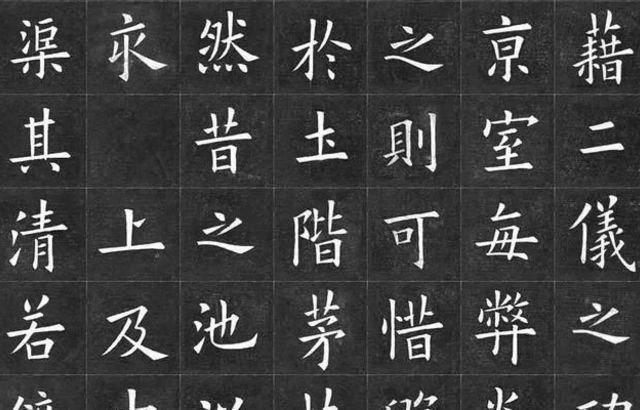 藉二儀之
亰室每弊
之則可惜
於土階茅
然昔之池
亥上及
渠其清若